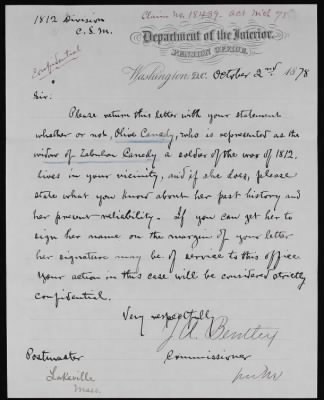 1812 Division
C. S. M.
Claim No. 18459. Act Mch 78
Confidential
Department of the Interior,
PENSION OFFICE,
Washington, D.C. October 2nd 1878
Sir.
Please return this letter with your statement
whether or not, Olive Canedy, who is represented as the
widow of Zebulon Canedy a soldier of the war of 1812,
lives in your vicinity, and if she does, please
state what you know about her past history and
her present reliability. If you can get her to
sign her name on the margin of your letter
her signature may be of service to this office
Your action in this case will be considered strictly
confidential.
Very respectfully
J A Bentley
Postmaster
Commissioner
Lakeville
Mass.